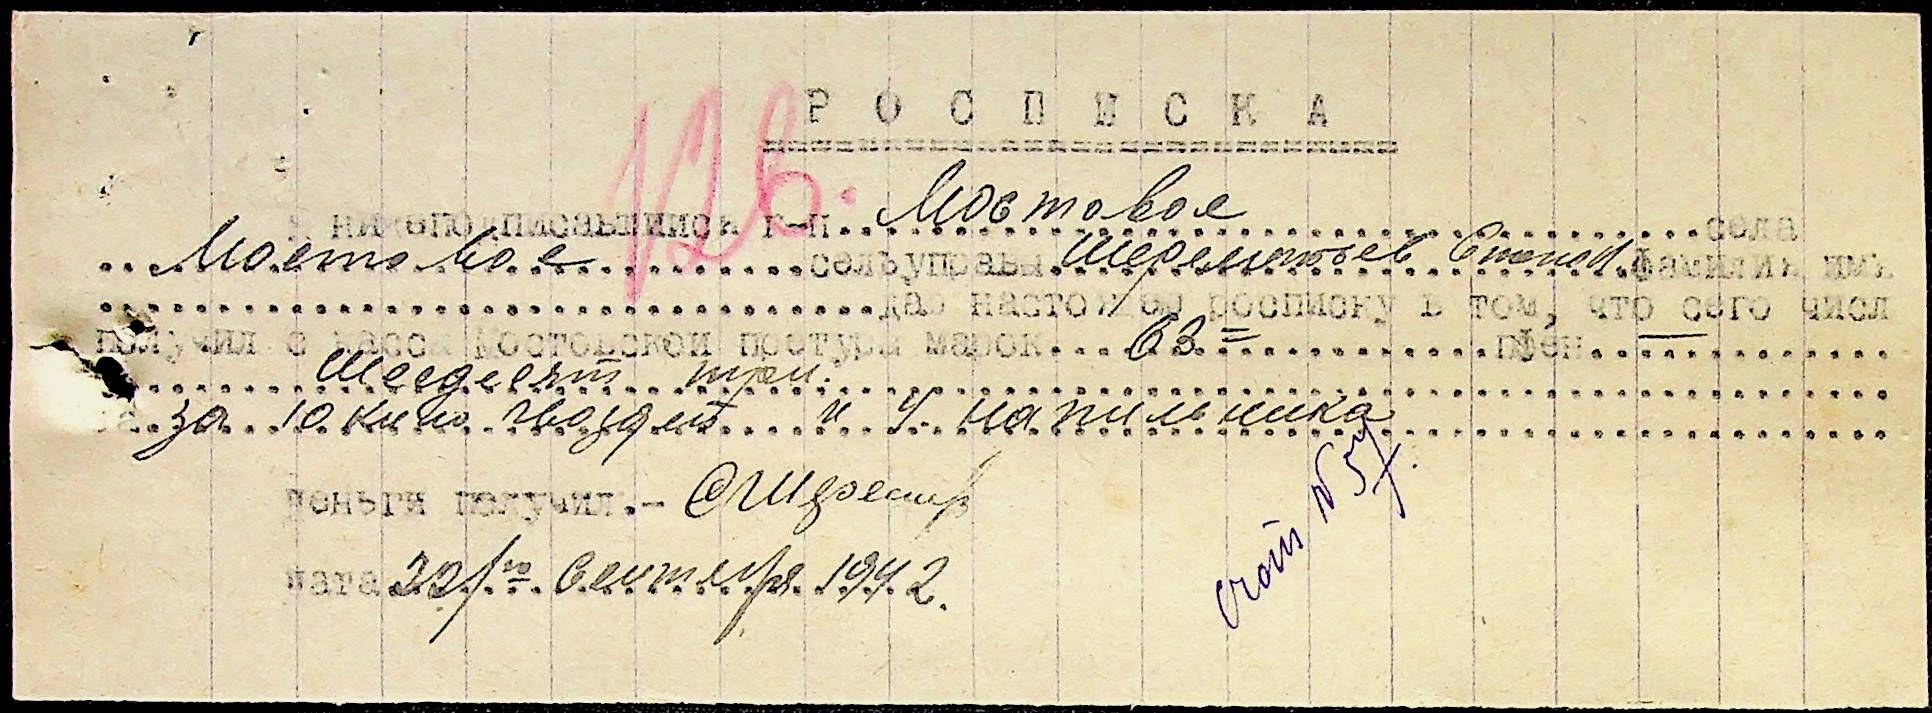 126.
РОСПИСКА
Я нижеподписавшийся г-н. Мостовое села
Мостовое сельуправы Шереметьев Степан фамилия имя
даю настоящую росписку в том, что сего числ
получил с кассы Мостовской простуры марок 63= пфен. —
Шесдесят три.
за за 10 кило гвоздей и 4 напильника
деньги получил.-
дата 22/го Сентября 1942.
счот № 57.